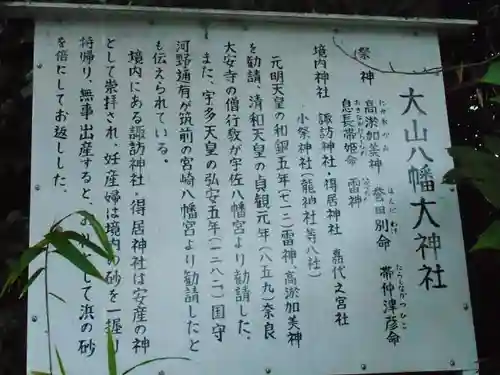 大山八幡大神社
祭神 高淤加美神 誉田別命 帯仲津彦命
息長帯姫命 雷神
境内神社 諏訪神社・得居神社 嘉代之宮社
小祭神社（龍神社等八社）
元明天皇の和銅五年（七一二）雷神、高淤加美神
を勧請、清和天皇の貞観元年（八五九）奈良
大安寺の僧行教が宇佐八幡宮より勧請した。
また、宇多天皇の弘安五年（一二八二）国守
河野通有が筑前の宮崎八幡宮より勧請したと
も伝えられている。
境内にある諏訪神社・得居神社は安産の神
として崇拝され、妊産婦は境内の砂を一握り
持帰り、無事出産すると、お として浜の砂
を倍にしてお返しした。